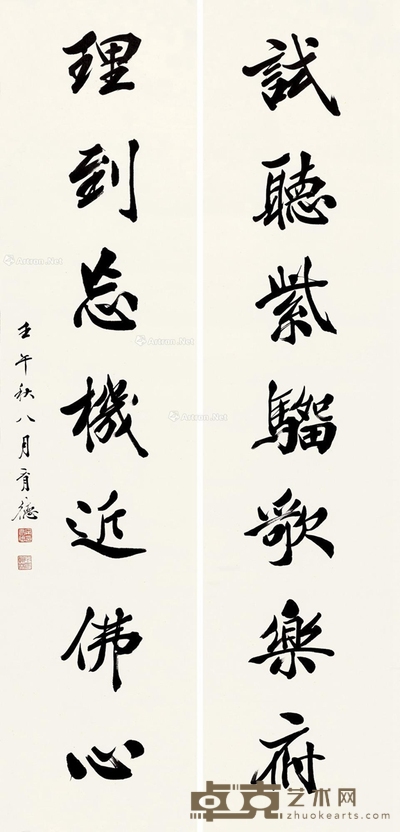 試聽紫騮歌樂府
理到忘機近佛心
壬午秋八月育德
Artron.Net
Artron.Net
Artron.Net
卓克艺术网
zhuokearts.com